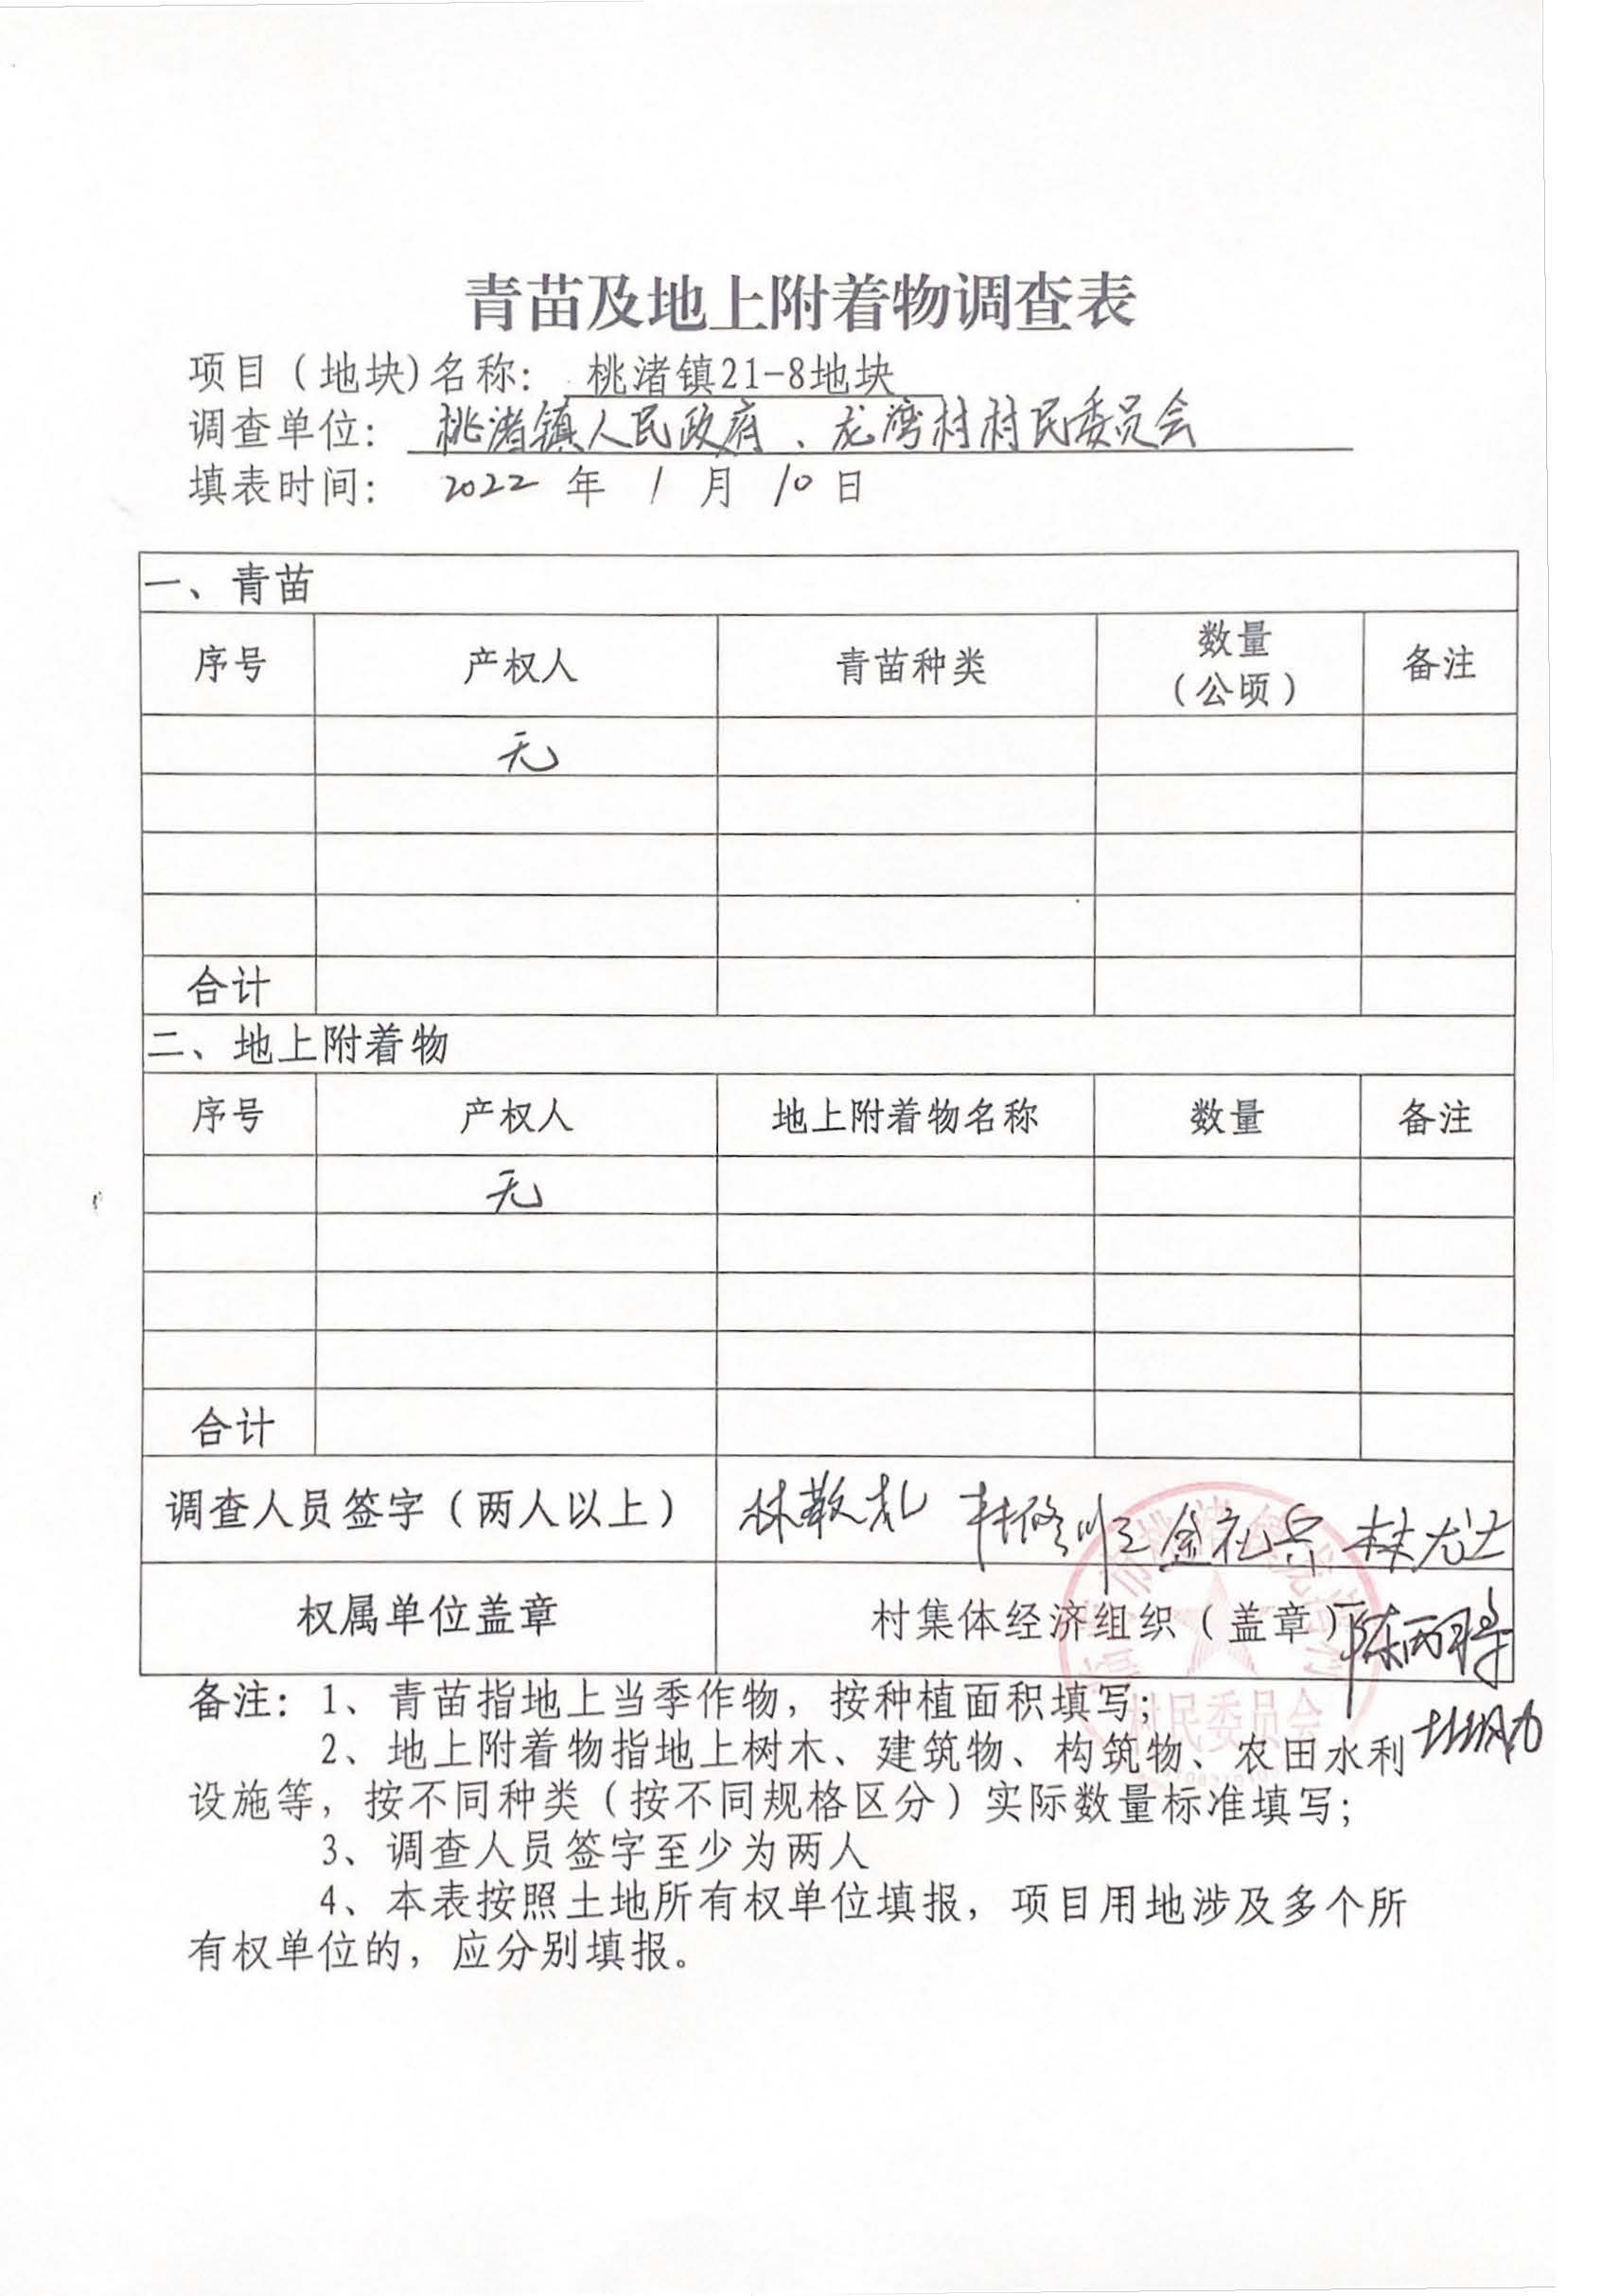 青苗及地上附着物调查表
项目（地块)名称： 桃渚镇21-8地块
调查单位： 桃渚镇人民政府、龙湾村村民委员会
填表时间： 2022 年 1 月 10 日
一、青苗
序号 产权人 青苗种类 数量（公顷） 备注
无
合计
二、地上附着物
序号 产权人 地上附着物名称 数量 备注
无
合计
调查人员签字（两人以上）
权属单位盖章 村集体经济组织（盖章）
村民委员会
备注：1、青苗指地上当季作物，按种植面积填写；
2、地上附着物指地上树木、建筑物、构筑物、农田水利
设施等，按不同种类（按不同规格区分）实际数量标准填写；
3、调查人员签字至少为两人
4、本表按照土地所有权单位填报，项目用地涉及多个所
有权单位的，应分别填报。